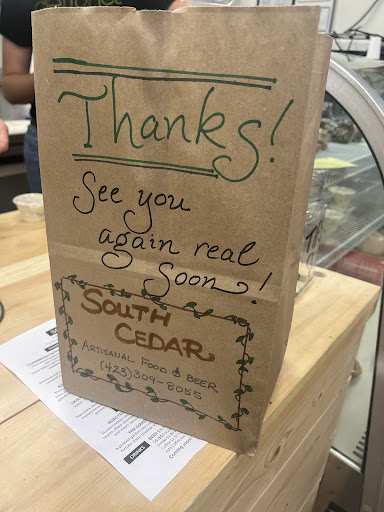 Thanks!
See you
again real
soon!
SOUTH
CEDAR
ARTISANAL FOOD & BEER
(423)309-8055
DRINKS